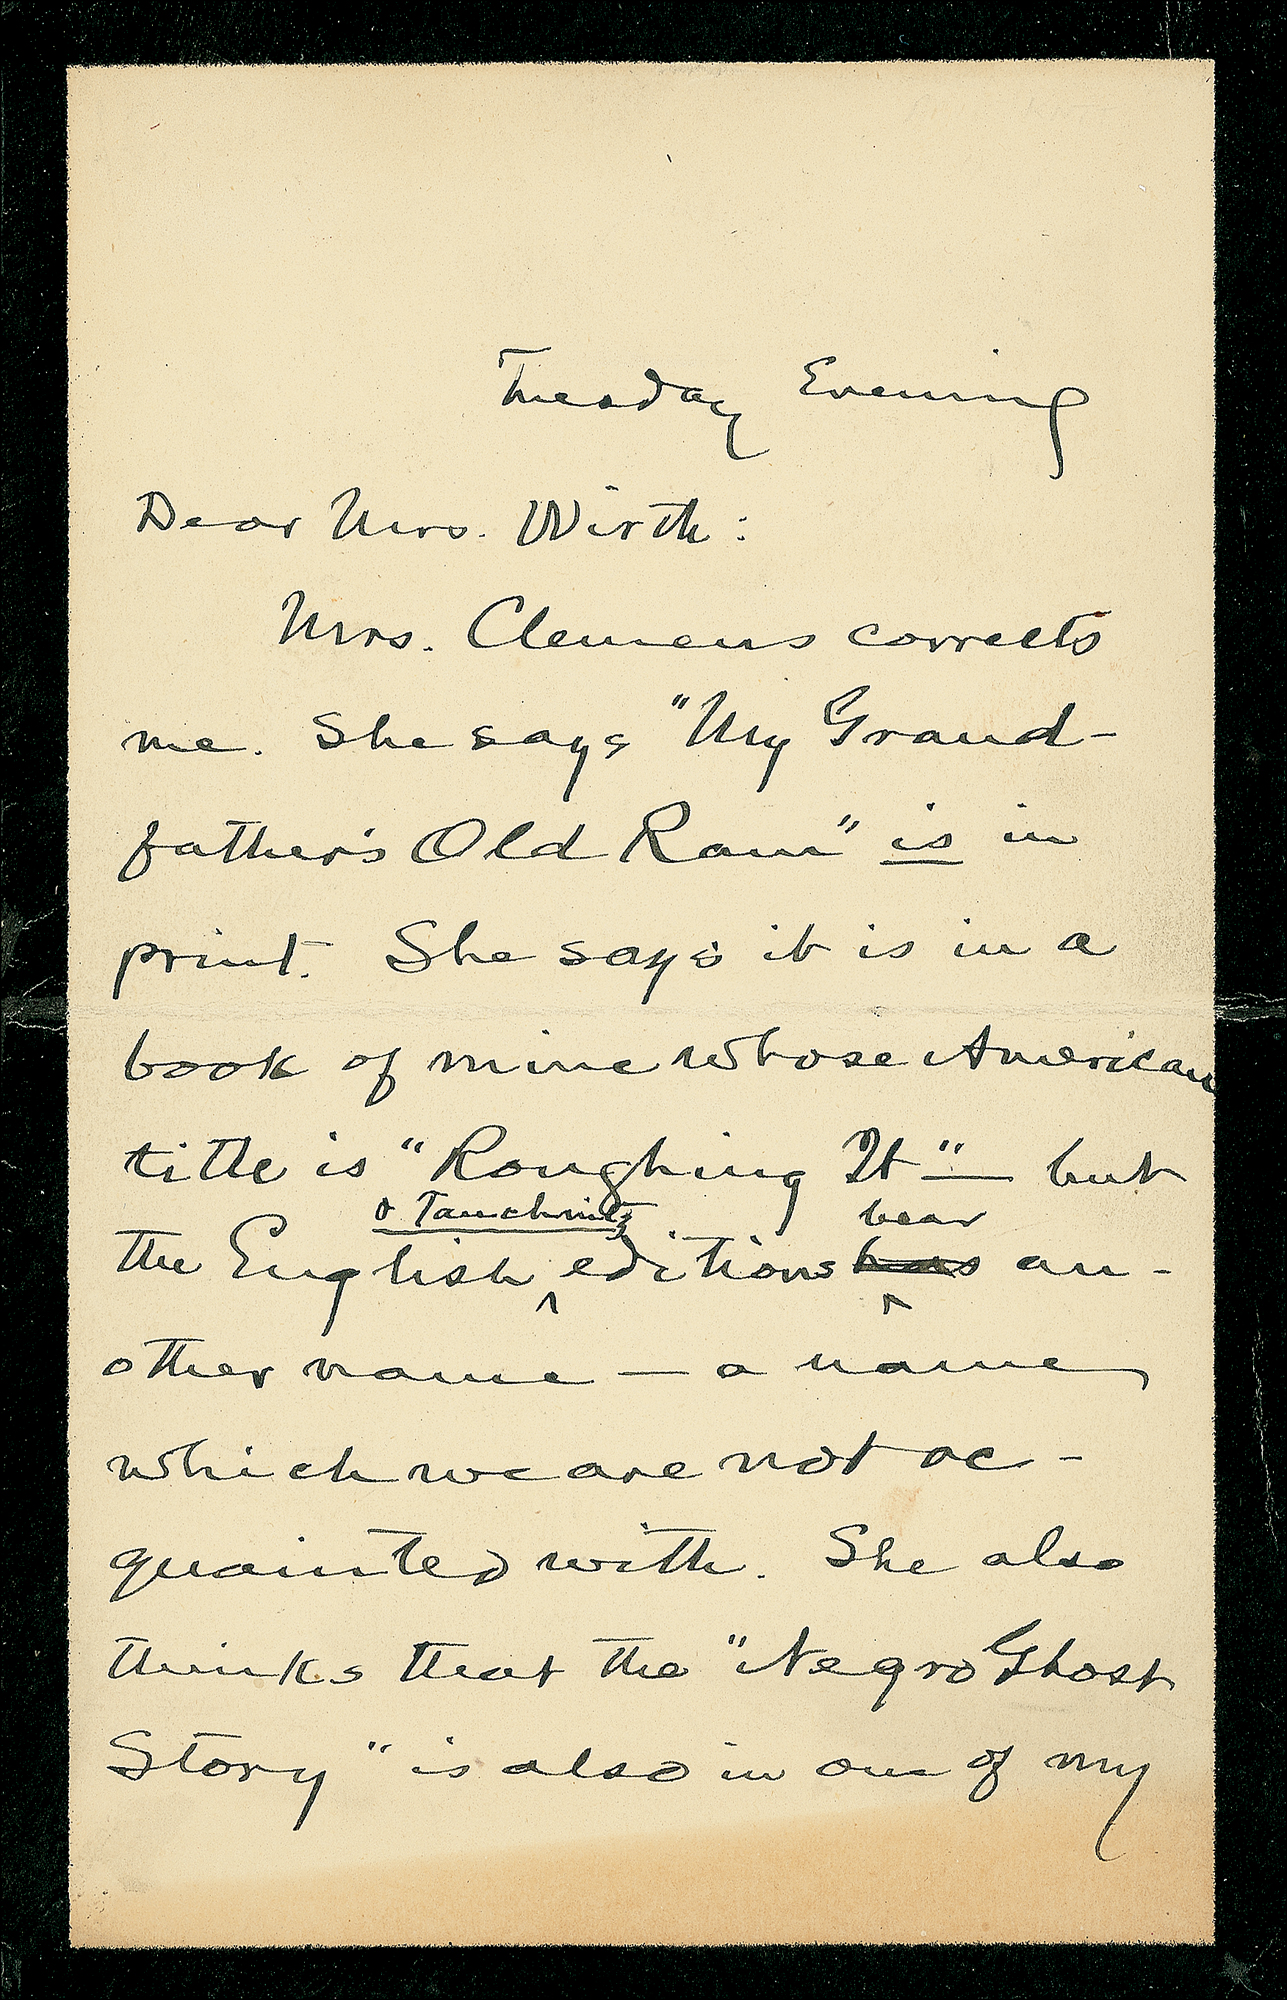 Tuesday Evening
Dear Mrs. Wirth:
Mrs. Clemens corrects
me. She says "My Grand-
father's Old Ram" is in
print. She says it is in a
book of mine whose American
title is "Roughing It" — but
& Tauchnitz bear
the English editions has an-
other name — a name
which we are not ac-
quainted with. She also
thinks that the "Negro Ghost
Story" is also in one of my